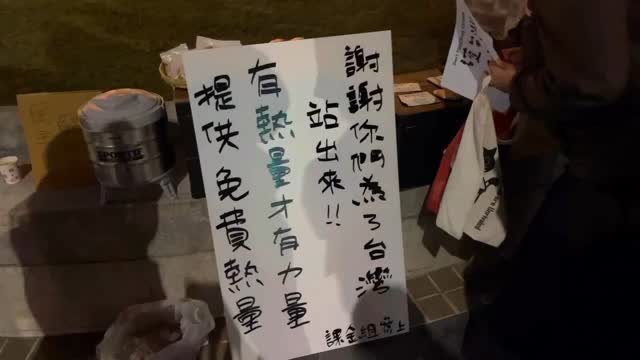 謝謝你們為了台灣
站出來!!
有熱量才有力量
提供免費熱量
課金組 敬上